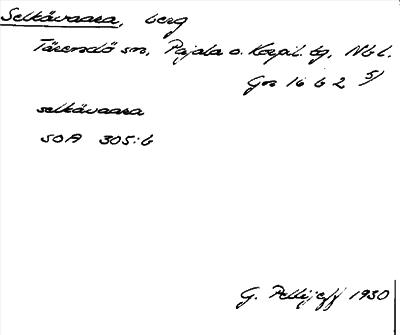 Selkävaara, berg
Tärendö sn, Pajala o. Korpil. tg, Nbl.
Gr 16 b 2 5)
selkävaara
SOA 305:6
G. Pellijeff 1930